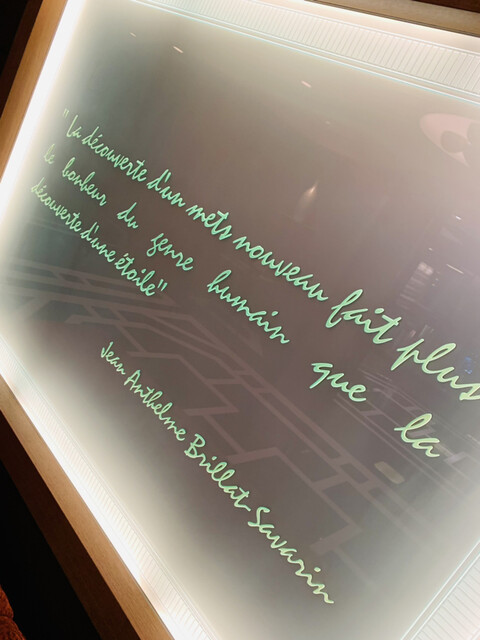 "La découverte d'un mets nouveau fait plus
le bonheur du genre humain que la
découverte d'une étoile"
Jean Anthelme Brillat-Savarin